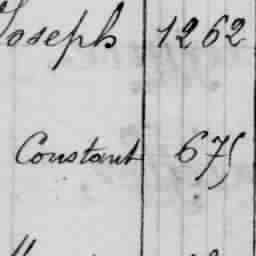 Joseph 1262
Constant 675